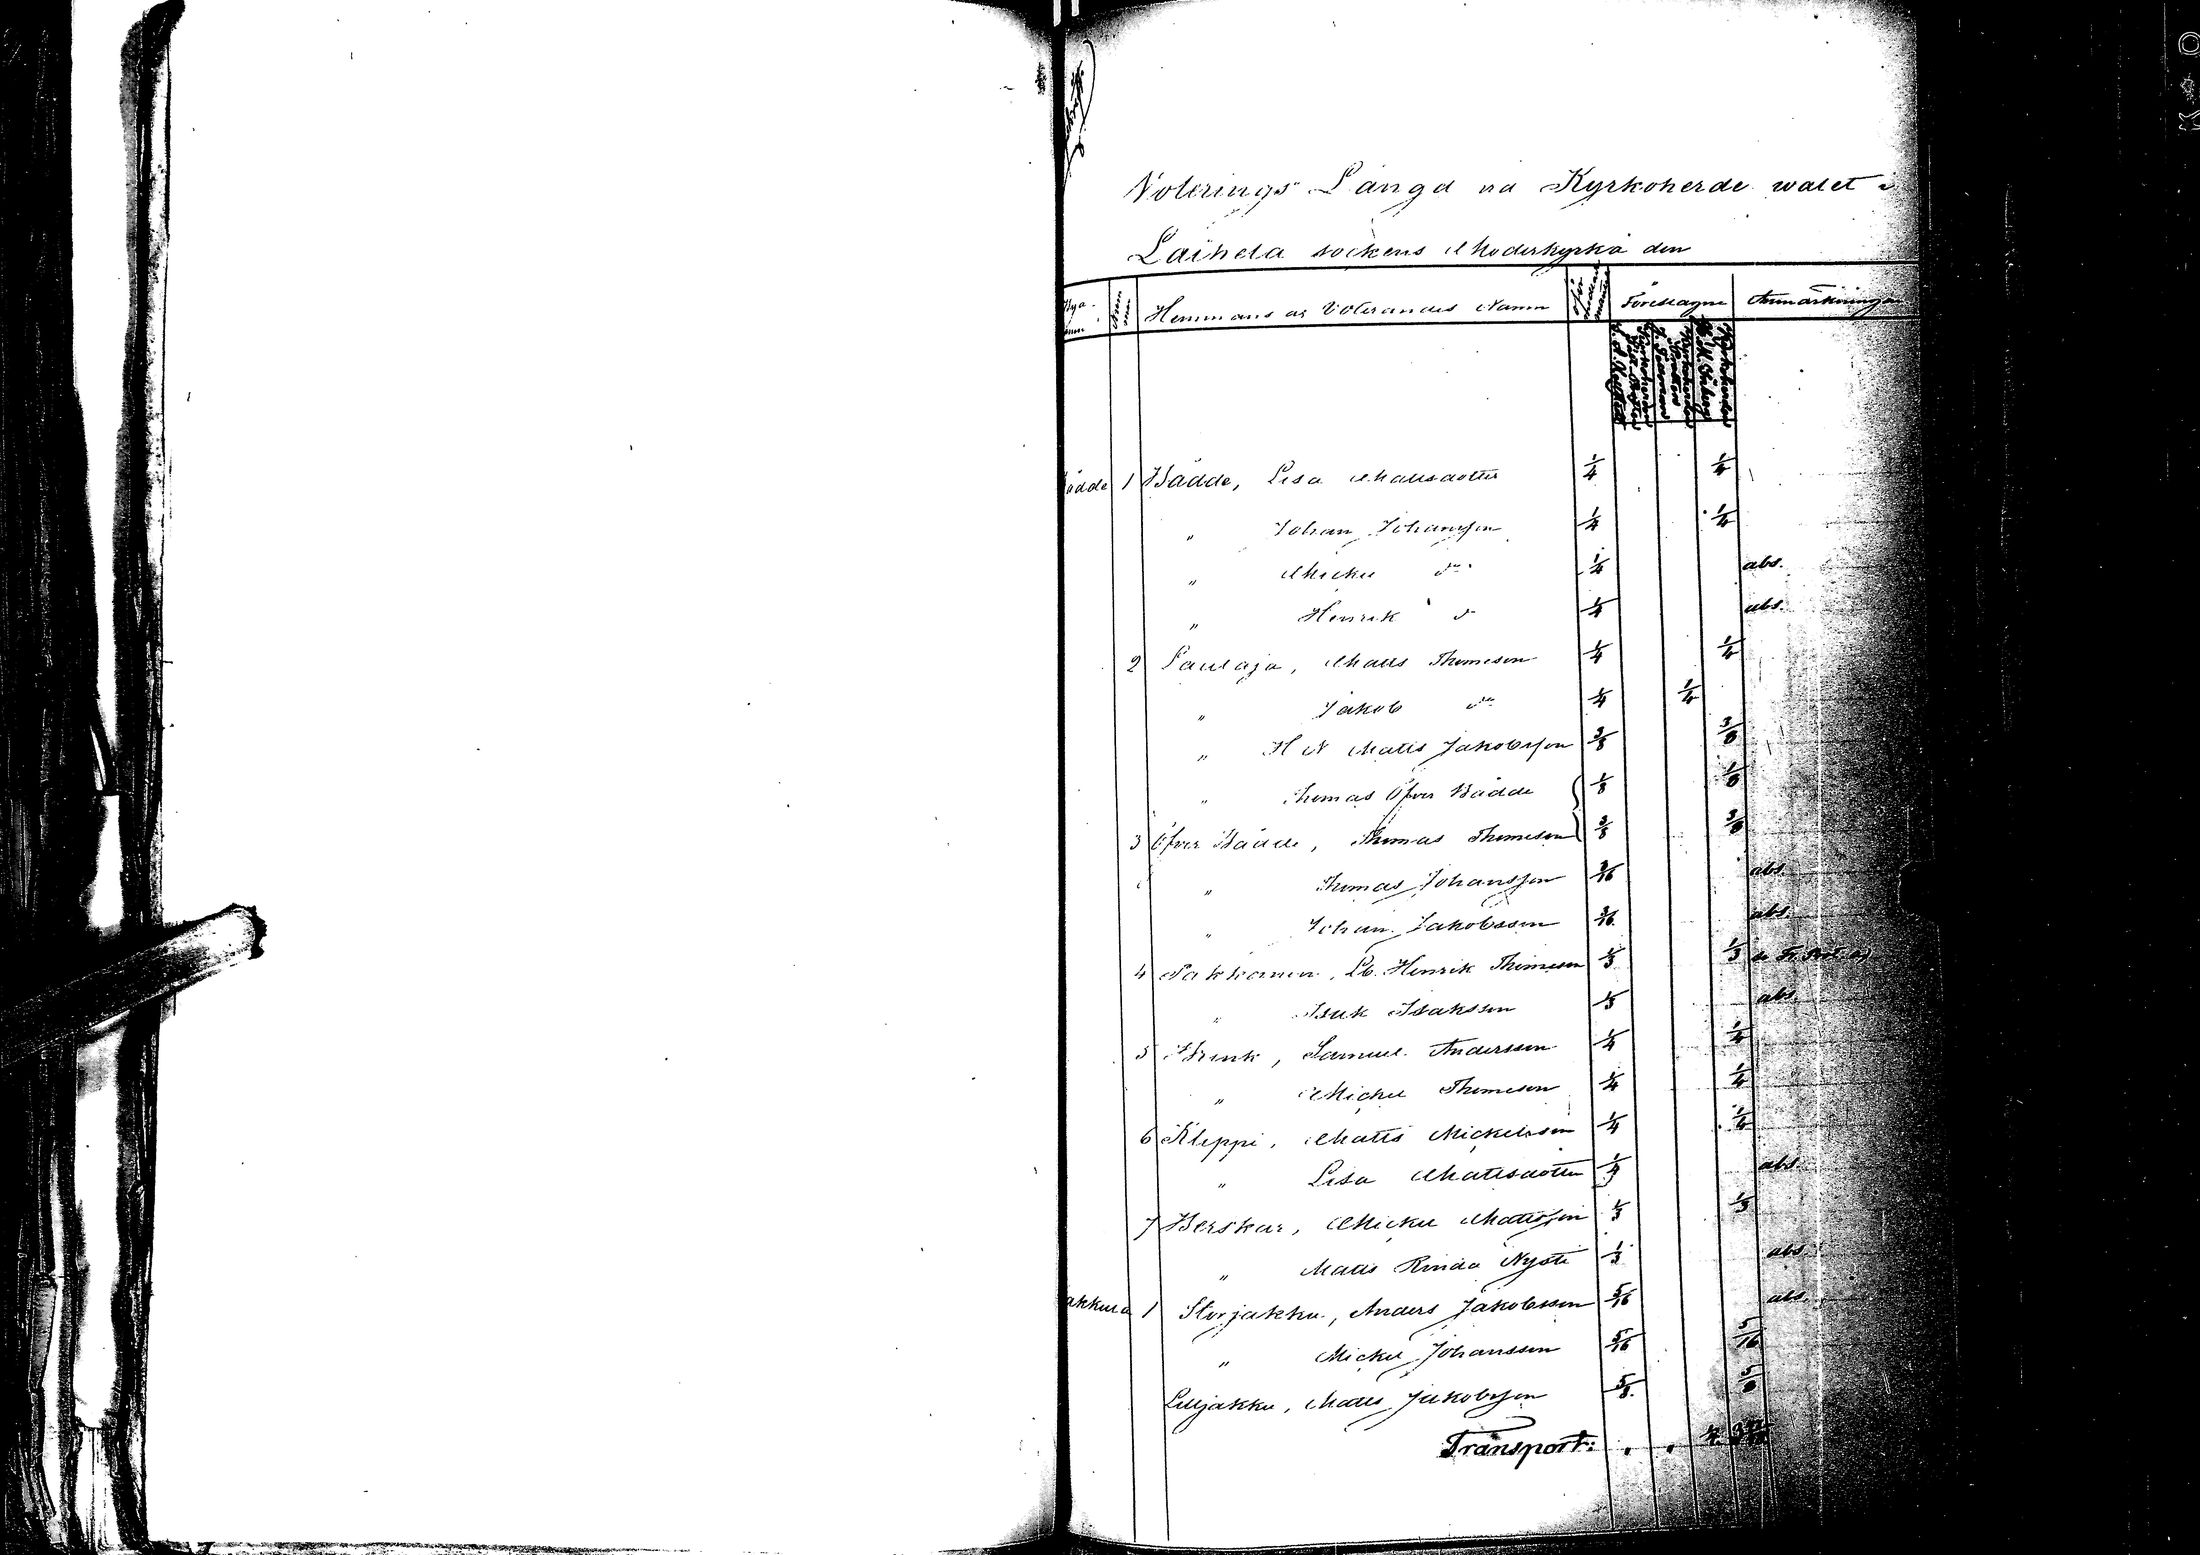 Voterings Längd vid Kyrkoherde walet i
Laihela sockens Moderkyrka den
Hemmans og Voterandes Namn Föreslagne Anmärkningar
Bådde 1 Bådde, Lisa Mattsdotter 1/4 1/4
" Johan Johansson 1/4 1/4
" Mickel do 1/4 abs.
" Henrik do 1/4 abs.
2 Paulaja, Matts Thomeson 1/4 1/4
" Jakob do 1/4 1/4
" H N Matts Jakobsson 3/8 3/8
" Thomas Öfver Bådde 1/8 1/8
3 Öfver Bådde, Thomas Thomeson 3/8 3/8
" Thomas Johansson 3/16 abs.
" Johan Jakobsson 3/16 abs.
4 Pakkanen, Lb. Henrik Thomeson 1/3 1/3
" Isak Isaksson 1/3 abs.
5 Brink, Samuel Andersson 1/4 1/4
" Mickel Thomeson 1/4 1/4
6 Kleppi, Matts Mickelsson 1/4 1/4
" Lisa Mattsdotter 1/4 abs.
7 Berskar, Mickel Mattsson 1/3 1/3
" Matts Rinda Nysti 1/3 abs.
akkula 1 Storjakku, Anders Jakobsson 5/16 abs.
" Mickel Johansson 5/16 5/16
Lilljakku, Matts Jakobsson 5/8 5/8
Transport: